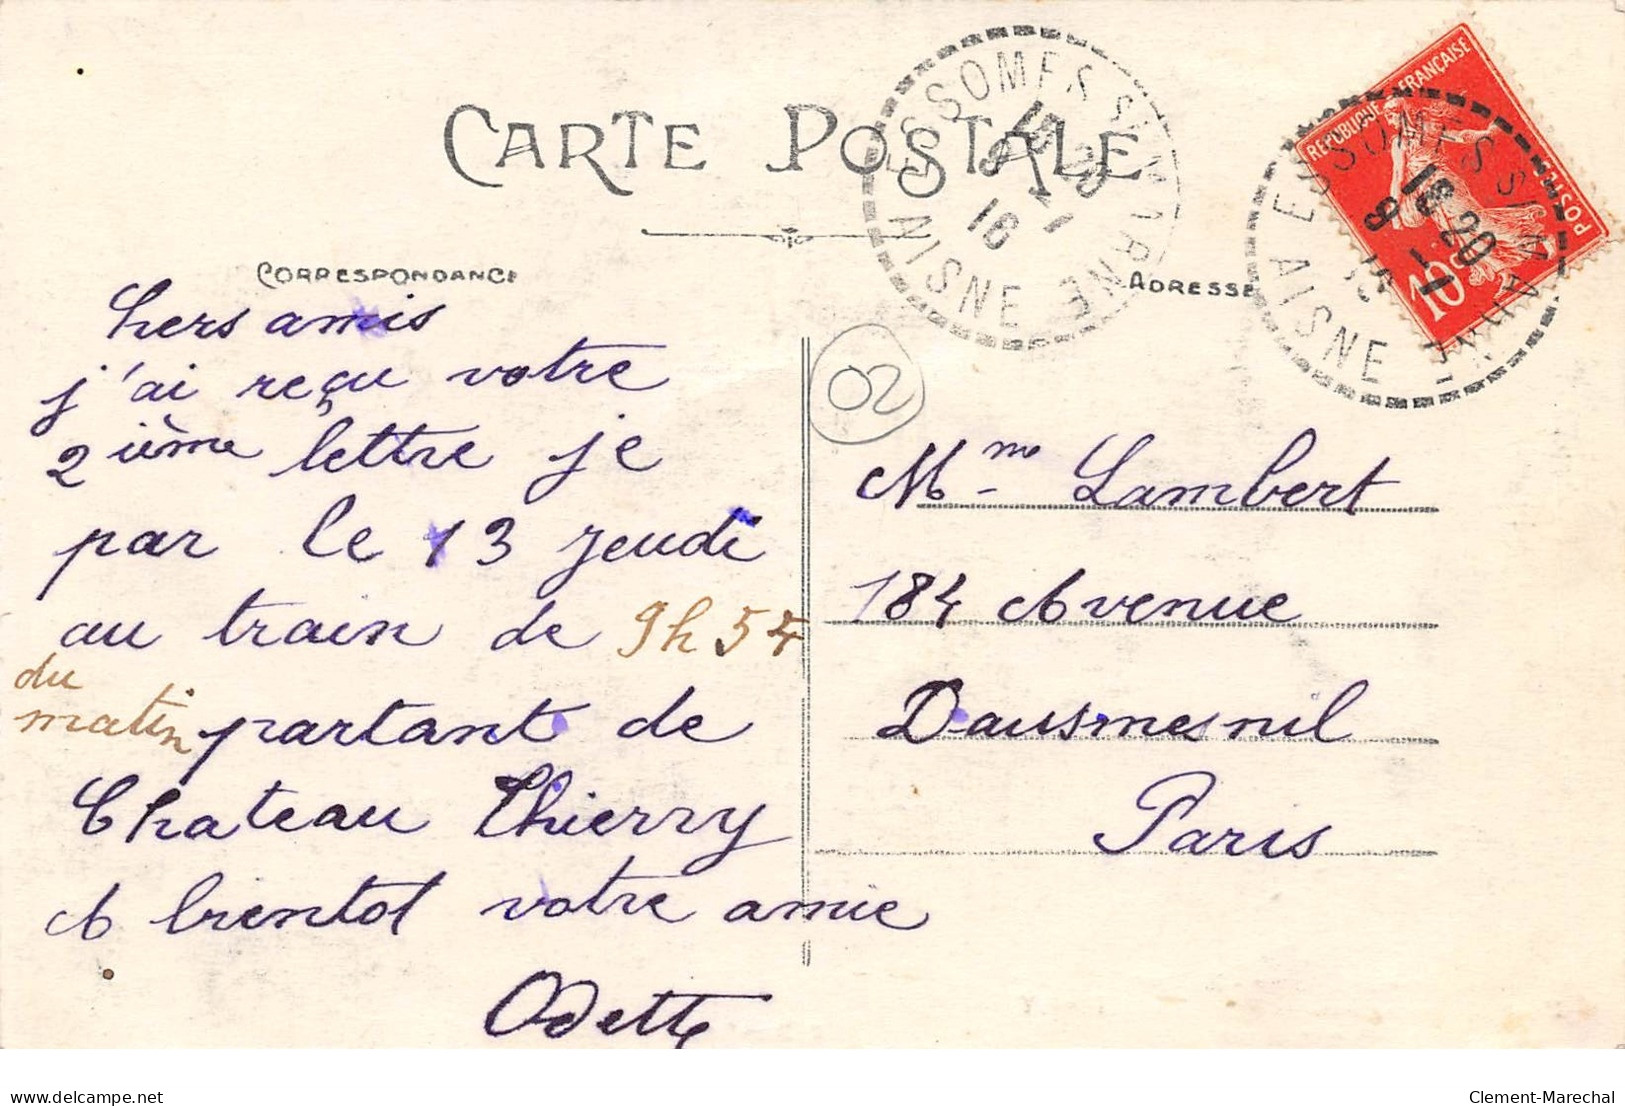 CARTE POSTALE
CORRESPONDANCE
ADRESSE
ESSOMES S/ MARNE
AISNE
16
RÉPUBLIQUE FRANÇAISE
POSTES
10c
ESSOMES S/ MARNE
18 20
9 -1
AISNE
02
Chers amis
j'ai reçu votre
2ième lettre je
par le 13 jeudi
au train de 9h54
du
matin partant de
Chateau Thierry
A bientot votre amie
Odette
Mme Lambert
184 Avenue
Dausmesnil
Paris
delcampe.net
Clement-Marechal